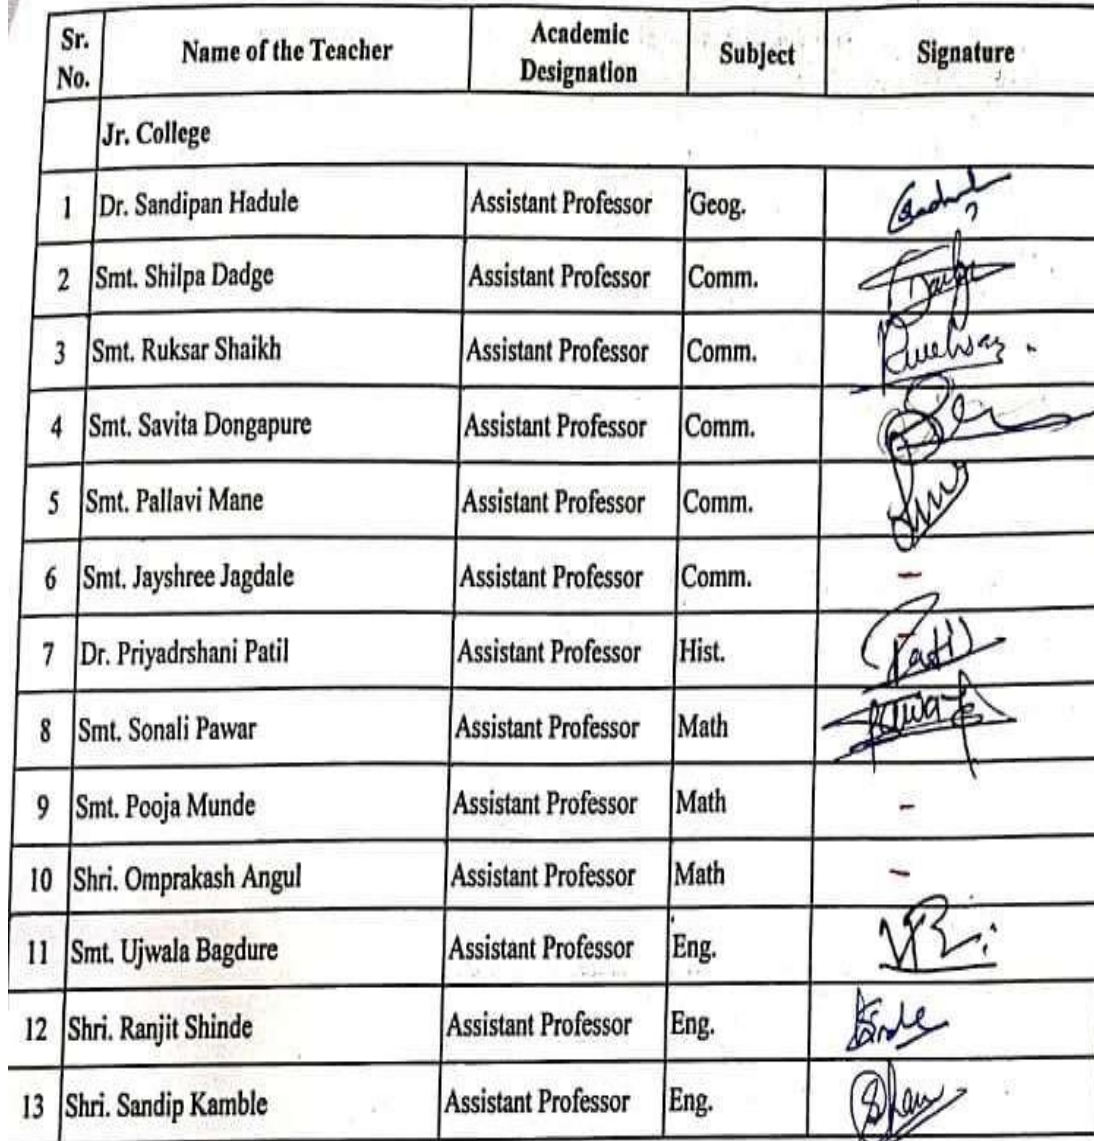 Sr. No. Name of the Teacher Academic Designation Subject Signature
Jr. College
1 Dr. Sandipan Hadule Assistant Professor Geog.
2 Smt. Shilpa Dadge Assistant Professor Comm.
3 Smt. Ruksar Shaikh Assistant Professor Comm.
4 Smt. Savita Dongapure Assistant Professor Comm.
5 Smt. Pallavi Mane Assistant Professor Comm.
6 Smt. Jayshree Jagdale Assistant Professor Comm. -
7 Dr. Priyadrshani Patil Assistant Professor Hist. Patil
8 Smt. Sonali Pawar Assistant Professor Math
9 Smt. Pooja Munde Assistant Professor Math -
10 Shri. Omprakash Angul Assistant Professor Math -
11 Smt. Ujwala Bagdure Assistant Professor Eng.
12 Shri. Ranjit Shinde Assistant Professor Eng.
13 Shri. Sandip Kamble Assistant Professor Eng.